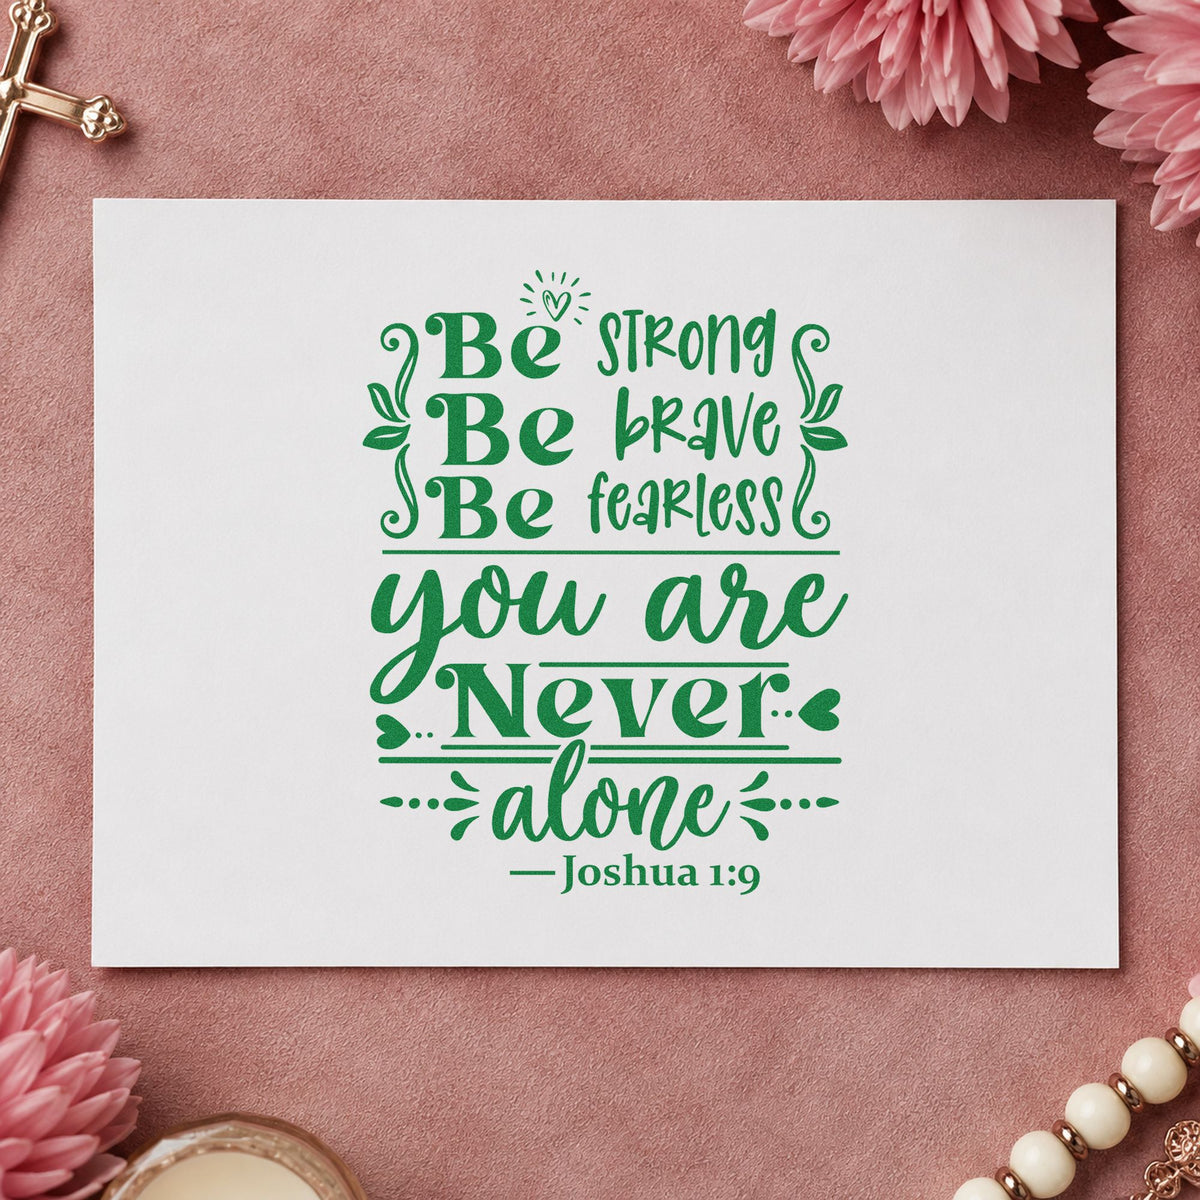 Be STRONG
Be bRAVE
Be feaRless
you are
Never
alone
—Joshua 1:9